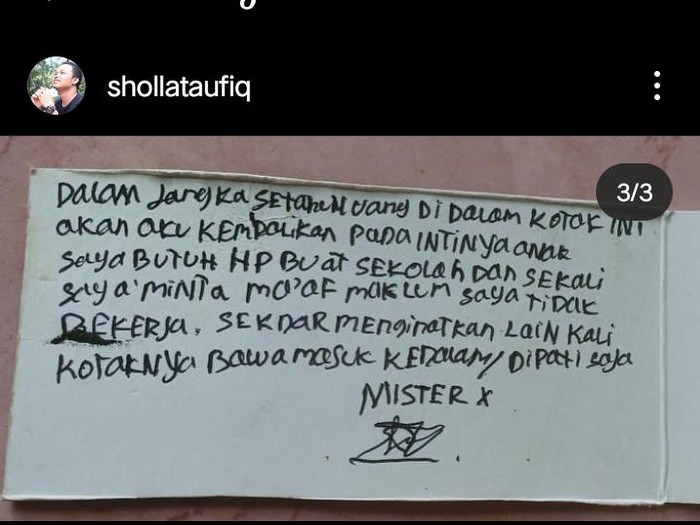 shollataufiq
3/3
Dalam Jangka SETAHUN Uang Di Dalam KOTAK INI
akan aku KEMBALIKAN PADA INTINya anak
saya BUTUH HP BUat SEKOLah DAN SEKALI
saya MINTA MA'AF MAKLUM saya TIDAK
BEKERJA. SEKDAR MENGINATKAN LAIN KALI
KOTAKNYA BAWA MASUK KEDALAM/DIPATI saja
MISTER X